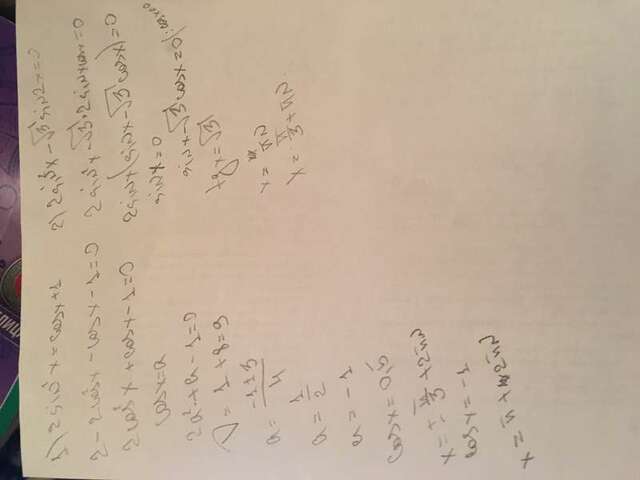 1) 2sin²x = cosx + 1
2 - 2cos²x - cosx - 1 = 0
2cos²x + cosx - 1 = 0
cosx = a
2a² + a - 1 = 0
D = 1 + 8 = 9
a = (-1 ± 3)/4
a = 1/2
a = -1
cosx = 0,5
x = ± π/3 + 2πn
cosx = -1
x = π + 2πn
2) 2sin²x - √3 sin2x = 0
2sin²x - √3·2sinxcosx = 0
2sinx(sinx - √3cosx) = 0
sinx = 0
sinx - √3cosx = 0 | :cosx≠0
tgx = √3
x = πn
x = π/3 + πn.